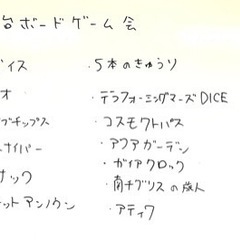 台ボードゲーム会
イス
オ
ブチップス
ナイパー
ナック
ットアンノウン
・5本のきゅうり
・テラフォーミングマーズDICE
・コスモクトパス
・アクアガーデン
・ガイアクロック
・南チグリスの旅人
・アティワ